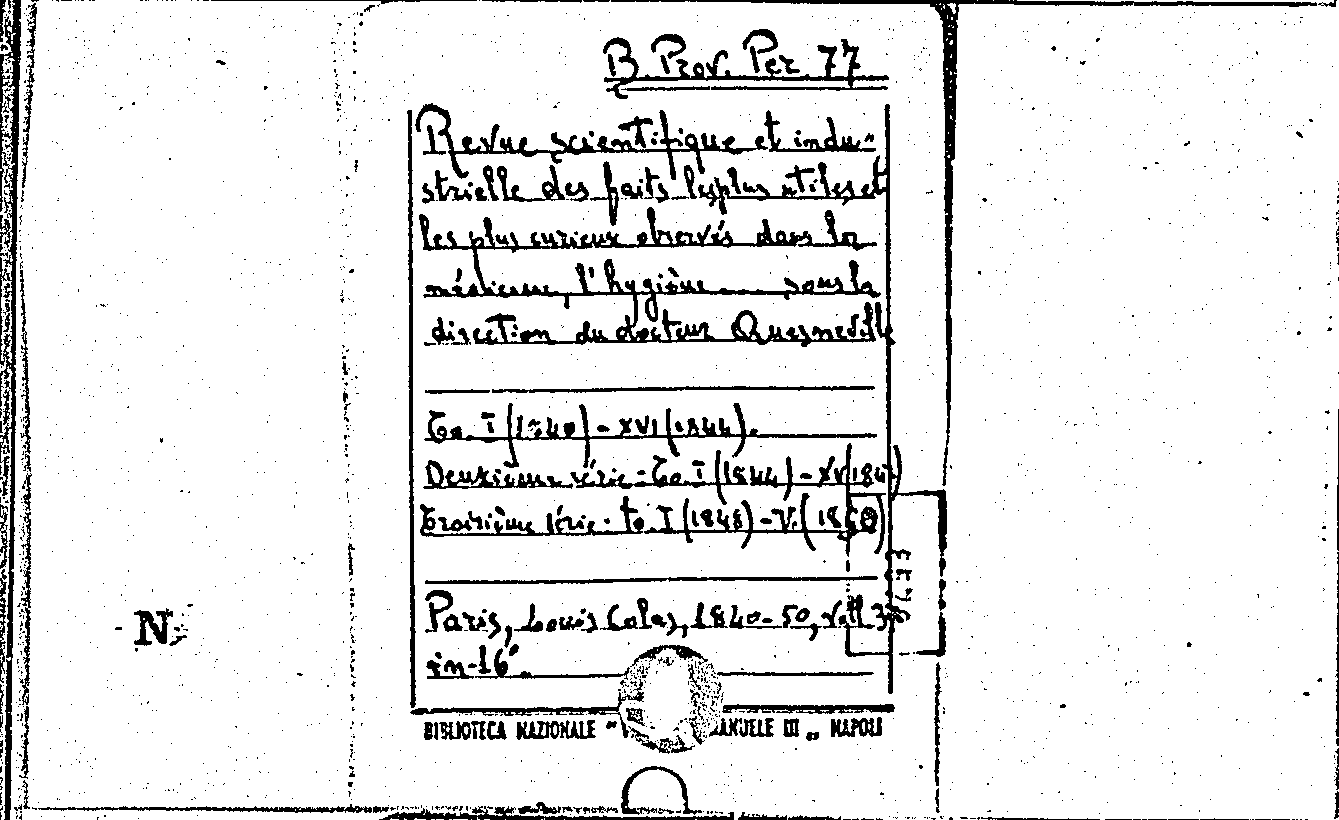 B. Prov. Per. 77
Revue scientifique et indu=
strielle des faits les plus utiles et
les plus curieux observés dans la
médicine, l'hygiène .... sous la
direction du docteur Quesneville
To. I (1840) - XVI (1844).
Deuxième série - To. I (1844) - XV (184
Troisième série - to. I (1848) - V. (1850)
Paris, Louis Colas, 1840-50, voll. 3
in-16°.
N
BIBLIOTECA NAZIONALE " ANUELE III „ NAPOLI